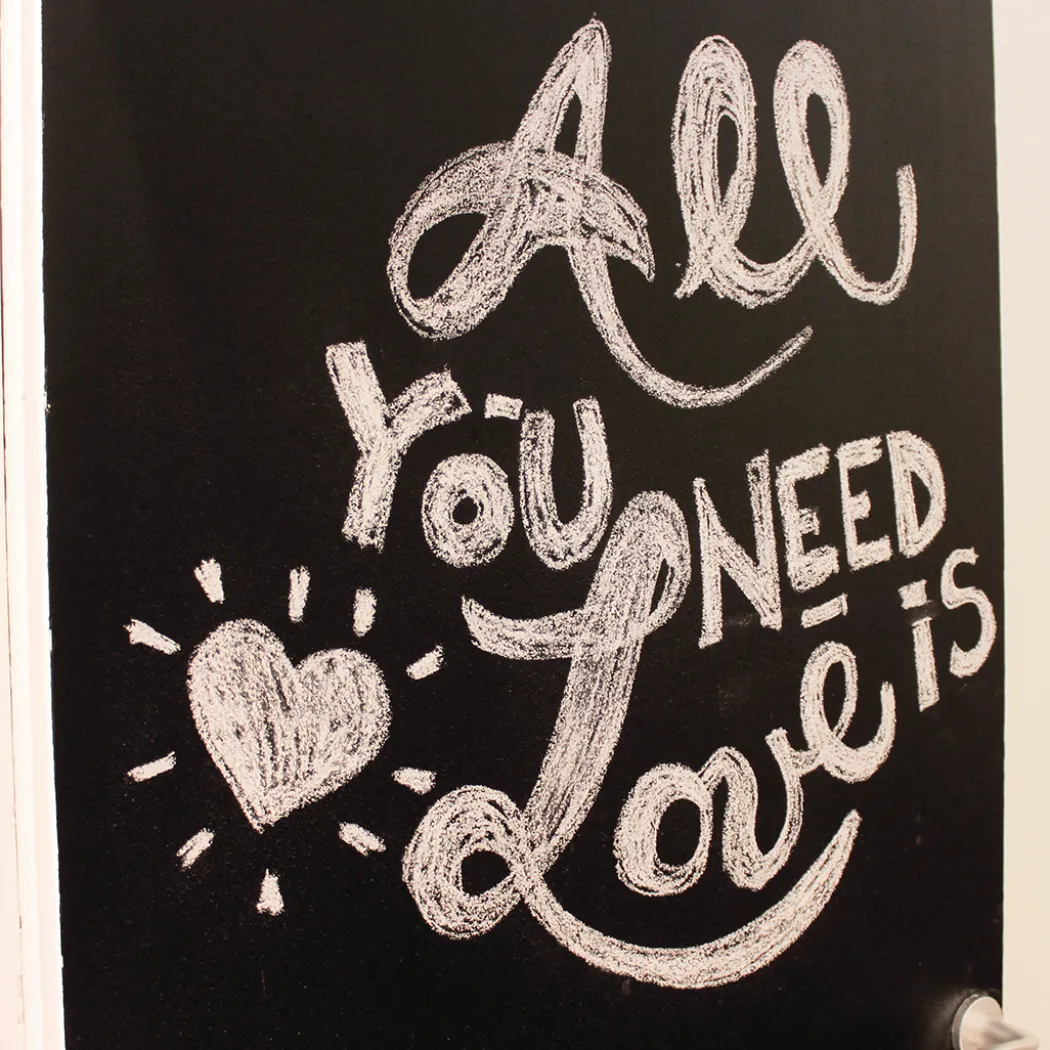 All
YOU NEED
Love is